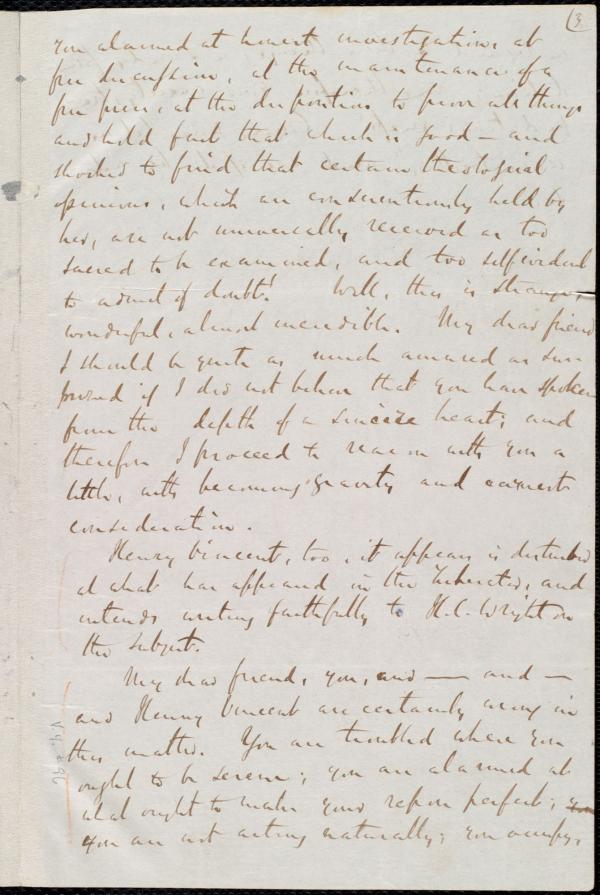 (3
you alarmed at honest investigation, at
free discussion, at the maintenance of a
free press, at the disposition to prove all things
and hold fast that which is good — and
shocked to find that certain theological
opinions, which are conscientiously held by
her, are not universally received as too
sacred to be examined, and too self evident
to admit of doubt! Well, this is strange,
wonderful, almost incredible. My dear friend
I should be quite as much amused as sur-
prised if I did not believe that you have spoken
from the depth of a sincere heart; and
therefore I proceed to reason with you a
little, with becoming gravity and earnest
consideration.
Henry Vincent, too, it appears is disturbed
at what has appeared in the Liberator, and
intends writing faithfully to H. C. Wright on
the subject.
My dear friend, you, and — and —
and Henry Vincent are certainly wrong in
this matter. You are troubled where you
ought to be serene; you are alarmed at
what ought to make your repose perfect;
you are not acting naturally; you occupy,